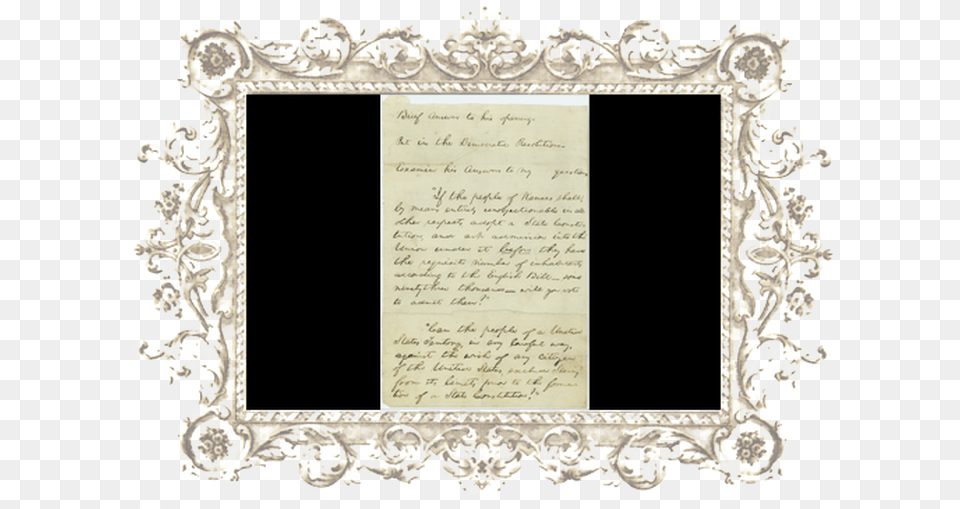 Brief answer to his opening.
Put in the Democratic Resolutions
Examine his answers to my questions
"If the people of Kansas shall,
by means entirely unobjectionable in all
other respects, adopt a State Consti-
tution, and ask admission into the
Union under it, before they have
the requisite number of inhabitants
according to the English Bill — some
ninety three thousand — will you vote
to admit them?"
"Can the people of a United
States Territory, in any lawful way,
against the wish of any citizen
of the United States, exclude slavery
from its limits, prior to the forma-
tion of a State Constitution?"